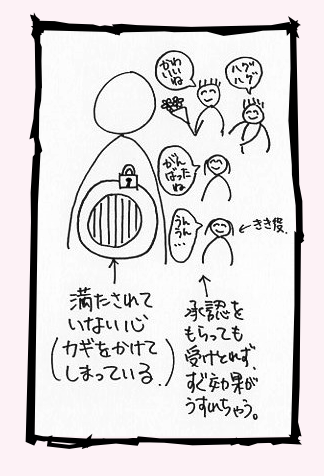 かわ
いい
ね
ハグ
ハグ
がん
ばった
ね
うん
うん
…
←きき役。
満たされて
いない心
(カギをかけて
しまっている。)
承認を
もらっても
受けとれず、
すぐ効果が
うすれちゃう。